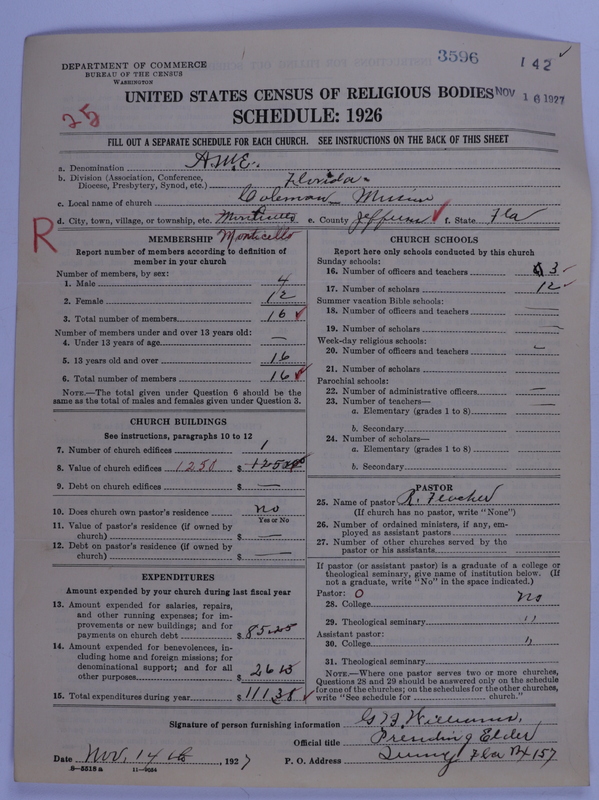 DEPARTMENT OF COMMERCE
BUREAU OF THE CENSUS
WASHINGTON
3596
142
UNITED STATES CENSUS OF RELIGIOUS BODIES
NOV 16 1927
SCHEDULE: 1926
25
FILL OUT A SEPARATE SCHEDULE FOR EACH CHURCH. SEE INSTRUCTIONS ON THE BACK OF THIS SHEET
a. Denomination A.M.E.
b. Division (Association, Conference, Diocese, Presbytery, Synod, etc.) Florida
c. Local name of church Coleman Mission
d. City, town, village, or township, etc. Monticello e. County Jefferson f. State Fla
R
MEMBERSHIP Monticello
Report number of members according to definition of
member in your church
Number of members, by sex:
1. Male 4
2. Female 12
3. Total number of members 16
Number of members under and over 13 years old:
4. Under 13 years of age —
5. 13 years old and over 16
6. Total number of members 16
NOTE.—The total given under Question 6 should be the
same as the total of males and females given under Question 3.
CHURCH BUILDINGS
See instructions, paragraphs 10 to 12
7. Number of church edifices 1
8. Value of church edifices 1250 $
9. Debt on church edifices $ —
10. Does church own pastor's residence no
Yes or No
11. Value of pastor's residence (if owned by
church) $ —
12. Debt on pastor's residence (if owned by
church) $ —
EXPENDITURES
Amount expended by your church during last fiscal year
13. Amount expended for salaries, repairs,
and other running expenses; for im-
provements or new buildings; and for
payments on church debt $ 85.25
14. Amount expended for benevolences, in-
cluding home and foreign missions; for
denominational support; and for all
other purposes $ 26 13
15. Total expenditures during year $ 111 38
CHURCH SCHOOLS
Report here only schools conducted by this church
Sunday schools:
16. Number of officers and teachers 3
17. Number of scholars 12
Summer vacation Bible schools:
18. Number of officers and teachers —
19. Number of scholars —
Week-day religious schools:
20. Number of officers and teachers —
21. Number of scholars
Parochial schools:
22. Number of administrative officers —
23. Number of teachers— —
a. Elementary (grades 1 to 8)
b. Secondary
24. Number of scholars—
a. Elementary (grades 1 to 8)
b. Secondary
PASTOR
25. Name of pastor R.
(If church has no pastor, write "None")
26. Number of ordained ministers, if any, em-
ployed as assistant pastors
27. Number of other churches served by the
pastor or his assistants
If pastor (or assistant pastor) is a graduate of a college or
theological seminary, give name of institution below. (If
not a graduate, write "No" in the space indicated.)
Pastor: O
28. College no
29. Theological seminary "
Assistant pastor:
30. College "
31. Theological seminary
NOTE.—Where one pastor serves two or more churches,
Questions 28 and 29 should be answered only on the schedule
for one of the churches; on the schedules for the other churches,
write "See schedule for church."
Signature of person furnishing information Williams,
Official title Presiding Elder
Date Nov. 14 th, 1927 P. O. Address Quincy Fla Bx 157
8—5518 a 11—9034